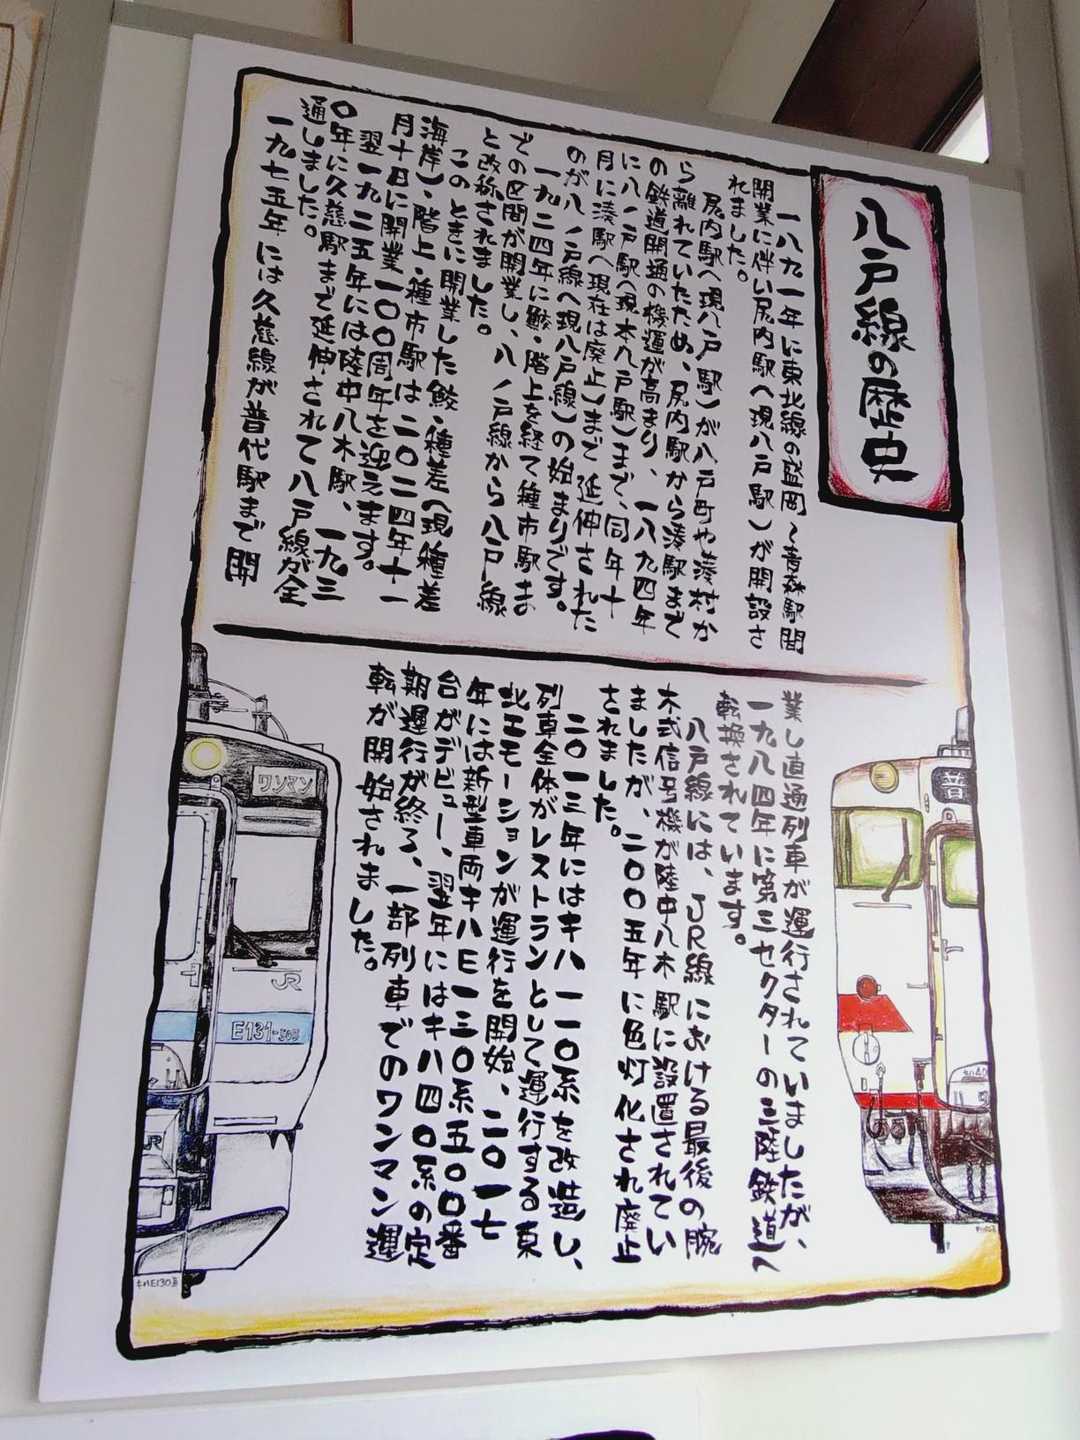 八戸線の歴史
一八九一年に東北線の盛岡〜青森駅間
開業に伴い尻内駅(現八戸駅)が開設さ
れました。
尻内駅(現八戸駅)が八戸町や湊村か
ら離れていたため、尻内駅から湊駅まで
の鉄道開通の機運が高まり、一八九四年
に八ノ戸駅(現本八戸駅)まで、同年十
月に湊駅(現在は廃止)まで延伸された
のが八ノ戸線(現八戸線)の始まりです。
一九二四年に鮫・階上を経て種市駅ま
での区間が開業し、八ノ戸線から八戸線
と改称されました。
このときに開業した鮫・種差(現種差
海岸)、階上・種市駅は二〇二四年十一
月十日に開業一〇〇周年を迎えます。
翌一九二五年には陸中八木駅、一九三
〇年に久慈駅まで延伸されて八戸線が全
通しました。
一九七五年には久慈線が普代駅まで開
業し直通列車が運行されていましたが、
一九八四年に第三セクターの三陸鉄道へ
転換されています。
八戸線には、JR線における最後の腕
木式信号機が陸中八木駅に設置されてい
ましたが、二〇〇五年に色灯化され廃止
されました。
二〇一三年にはキハ一一〇系を改造し、
列車全体がレストランとして運行する東
北エモーションが運行を開始、二〇一七
年には新型車両キハE一三〇系五〇〇番
台がデビュー、翌年にはキハ四〇系の定
期運行が終了、一部列車でのワンマン運
転が開始されました。
ワンマン
JR
E131-505
キハE130系
普